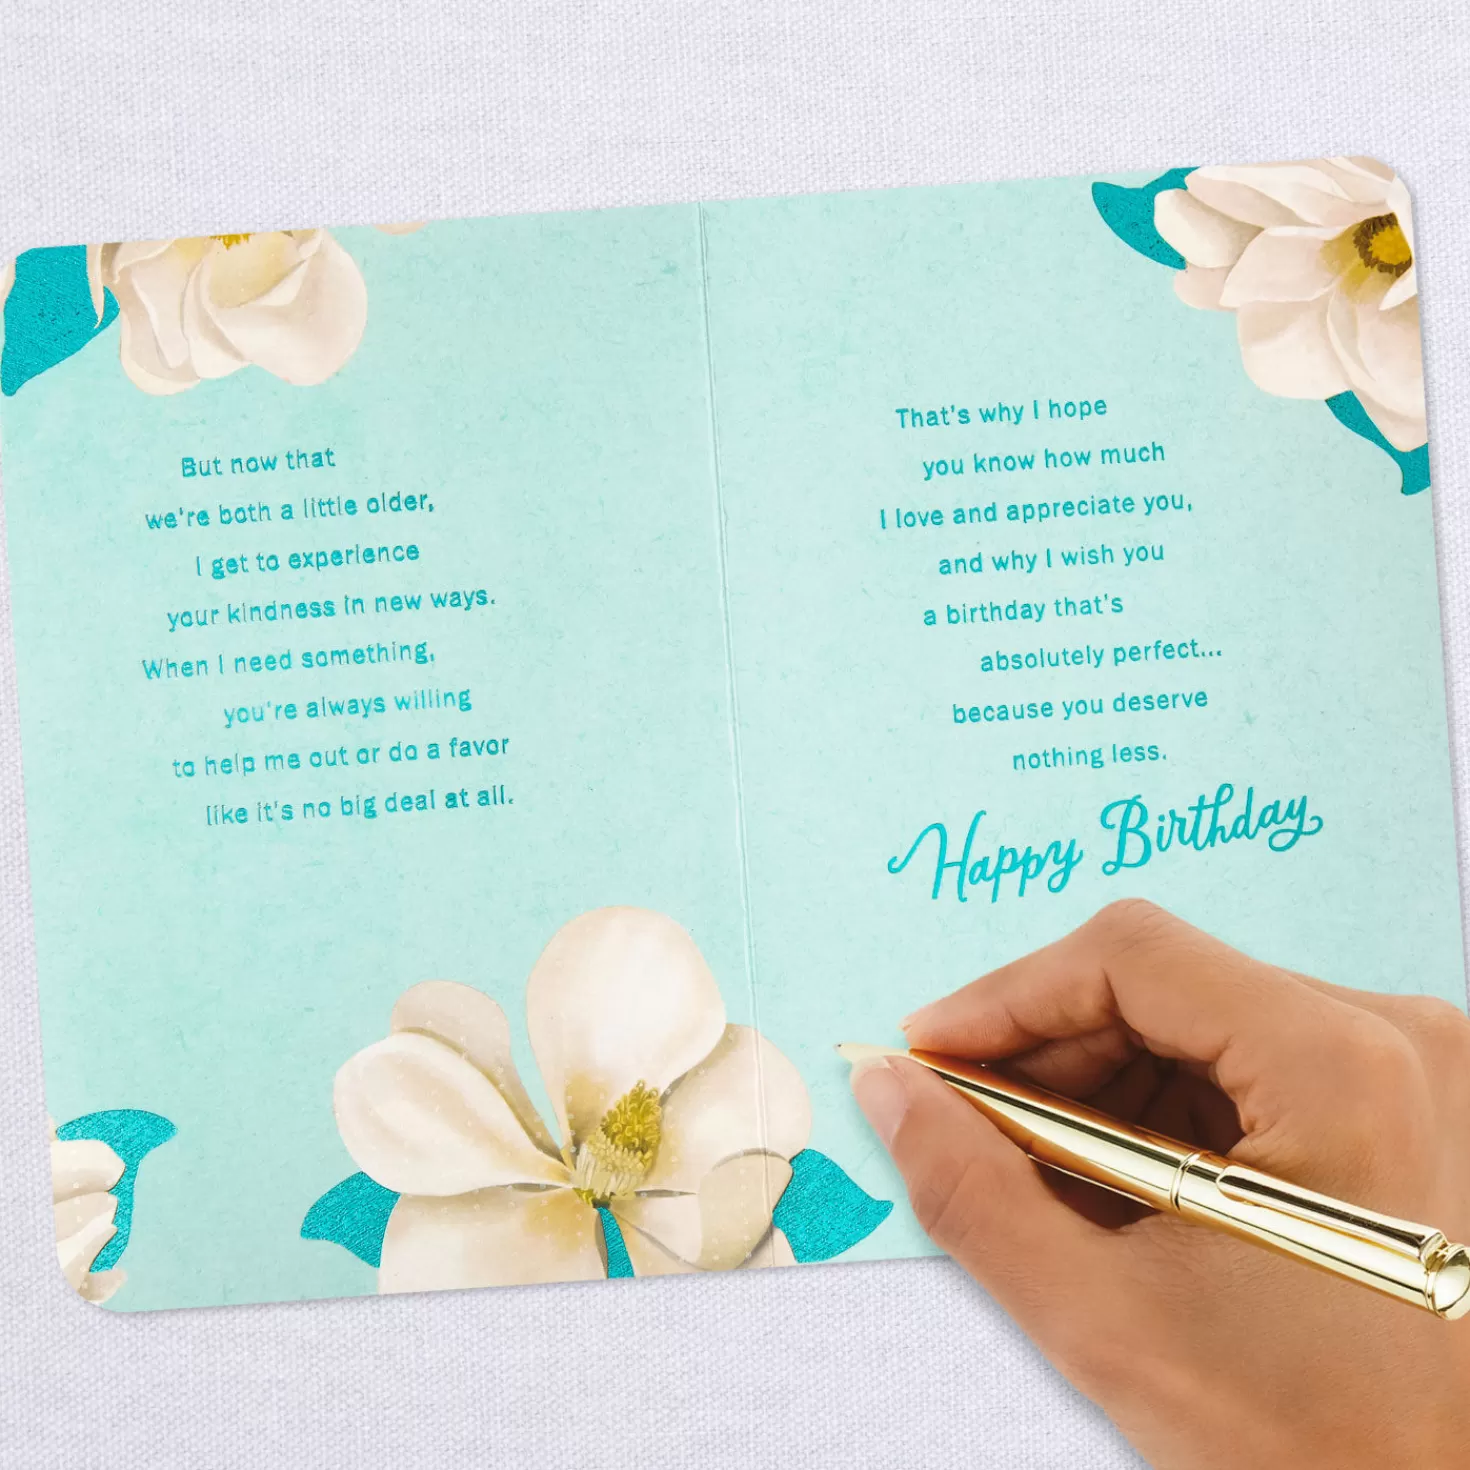 But now that
we're both a little older,
I get to experience
your kindness in new ways.
When I need something,
you're always willing
to help me out or do a favor
like it's no big deal at all.
That's why I hope
you know how much
I love and appreciate you,
and why I wish you
a birthday that's
absolutely perfect...
because you deserve
nothing less.
Happy Birthday